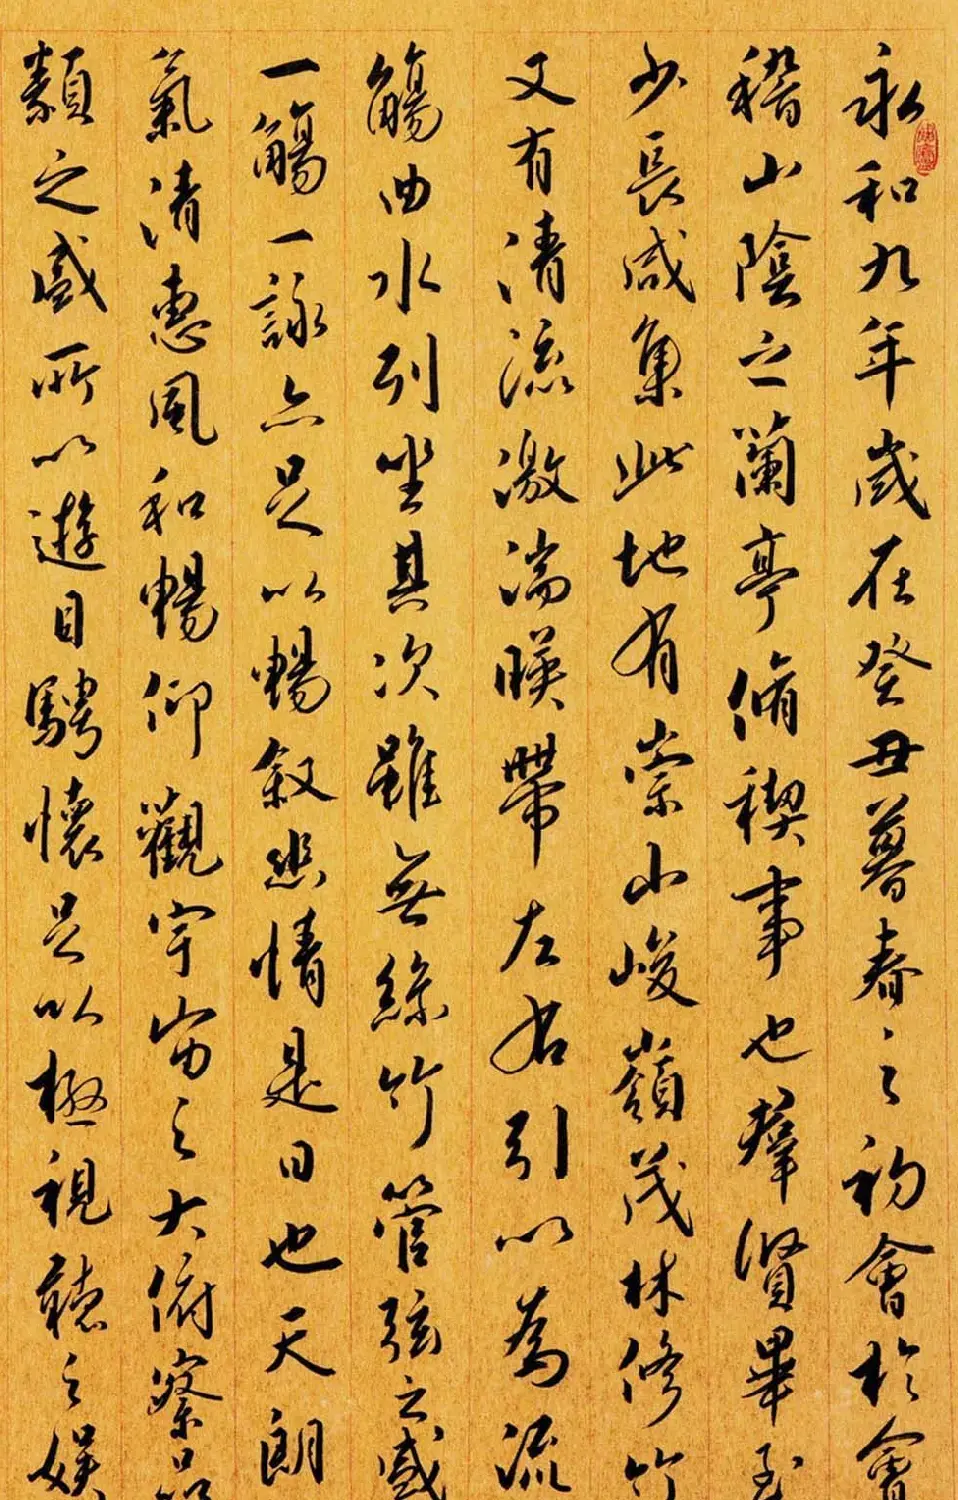 永和九年歲在癸丑暮春之初會於會
稽山陰之蘭亭脩禊事也群賢畢至
少長咸集此地有崇山峻嶺茂林修竹
又有清流激湍暎帶左右引以為流
觴曲水列坐其次雖無絲竹管弦之盛
一觴一詠亦足以暢敘幽情是日也天朗
氣清惠風和暢仰觀宇宙之大俯察品
類之盛所以遊目騁懷足以極視聽之娛